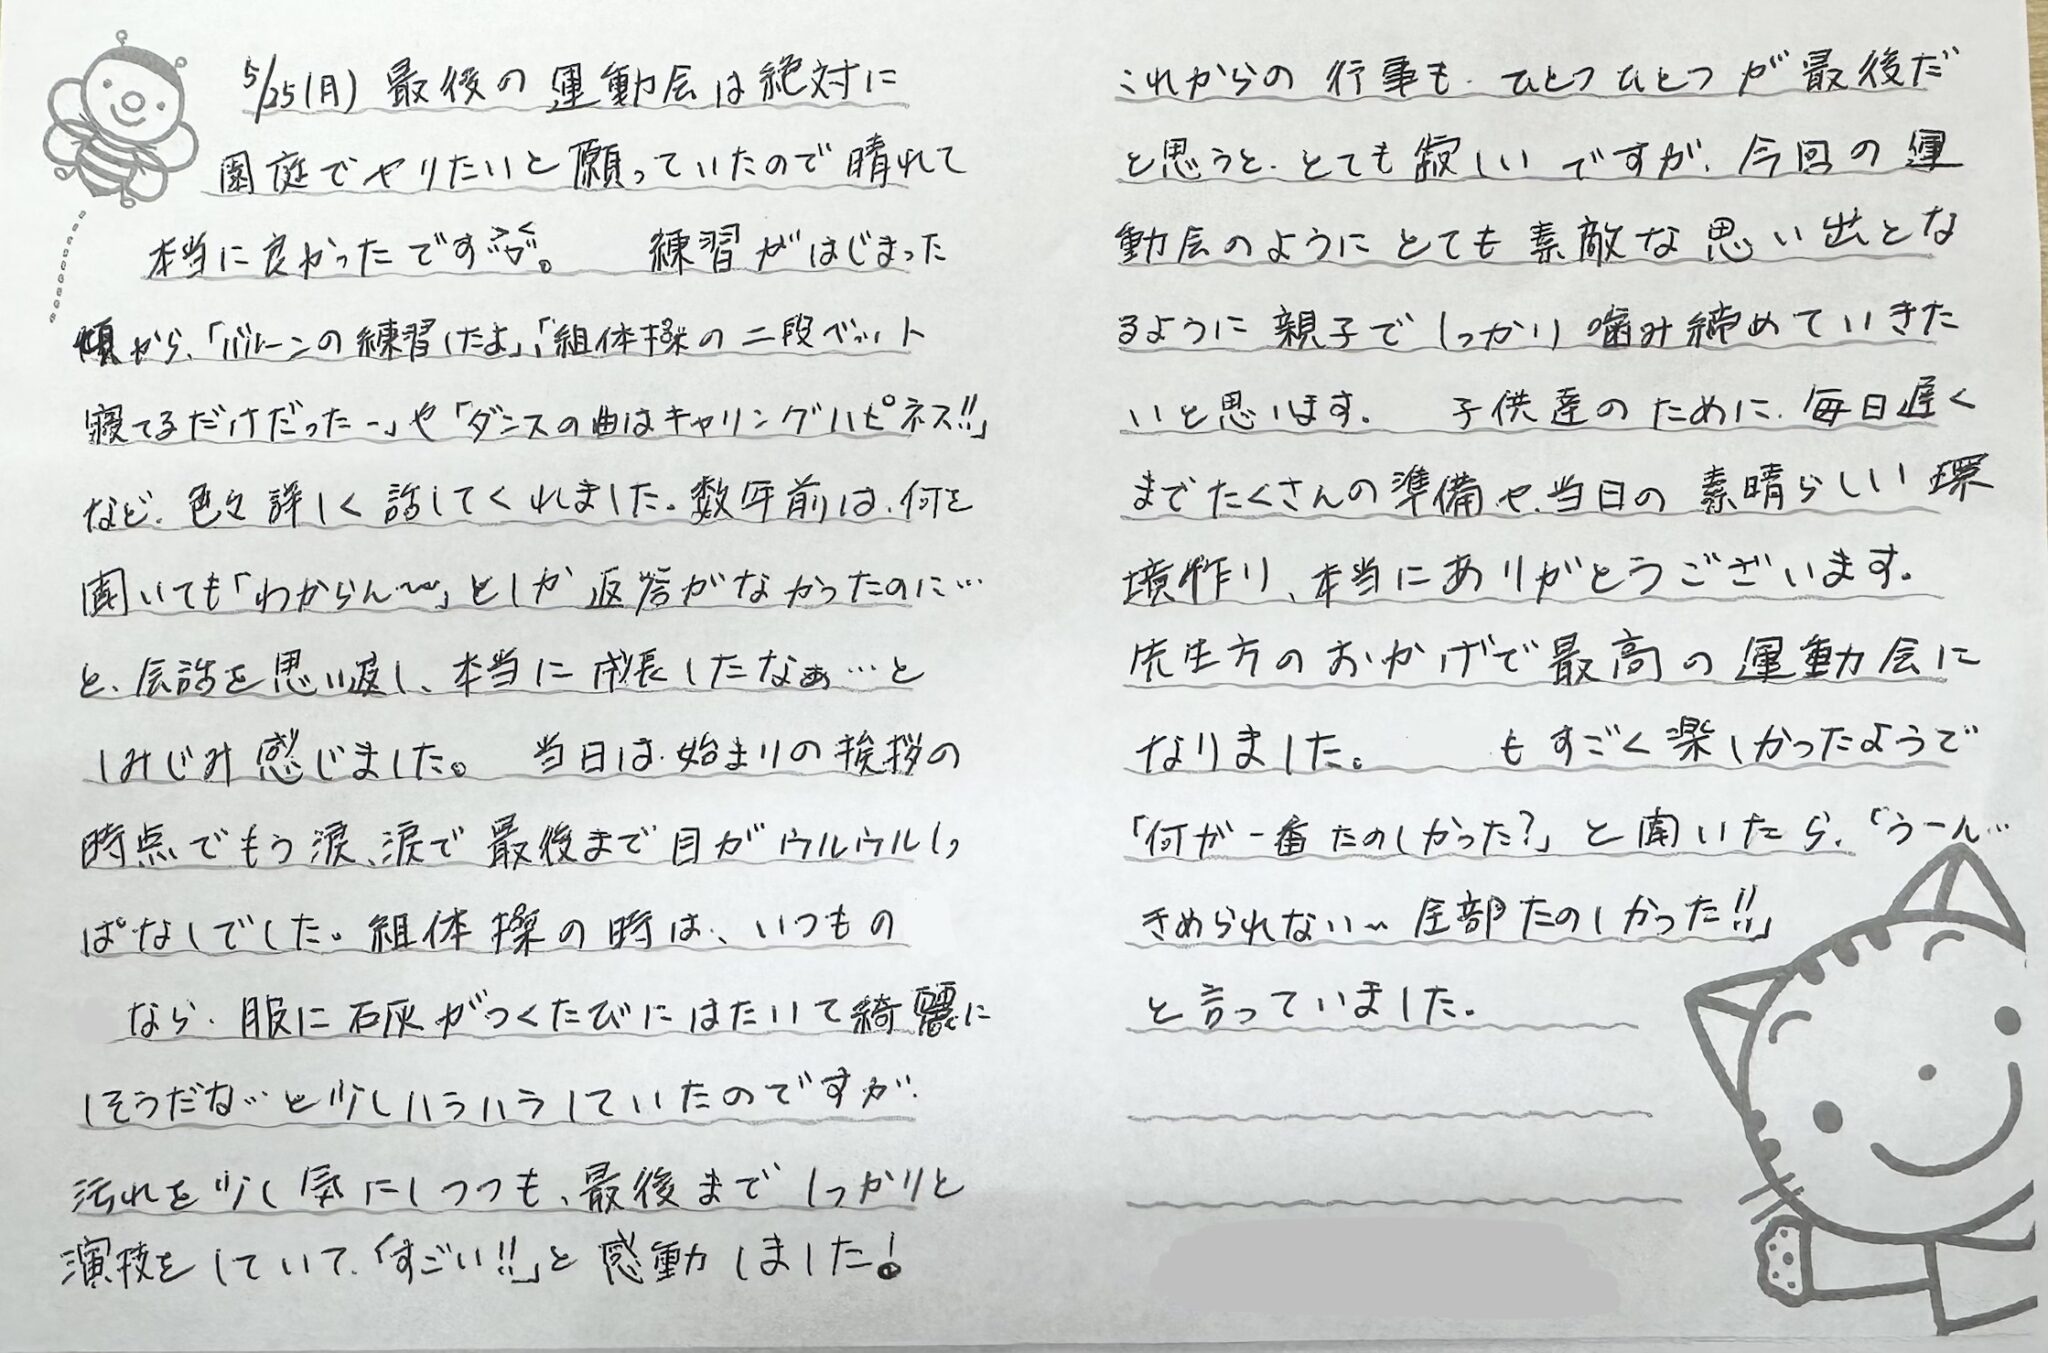 5/25(月) 最後の運動会は絶対に
園庭でやりたいと願っていたので晴れて
本当に良かったです。 練習がはじまった
頃から、「バルーンの練習したよ」、「組体操の二段ベット
寝てるだけだったー」や「ダンスの曲はキャリングハピネス!!」
など、色々詳しく話してくれました。数年前は、何を
聞いても「わからん〜」としか返答がなかったのに…
と、会話を思い返し、本当に成長したなぁ…と
しみじみ感じました。 当日は、始まりの挨拶の
時点でもう涙、涙で最後まで目がウルウルしっ
ぱなしでした。組体操の時は、いつもの
なら、服に石灰がつくたびにはたいて綺麗に
しそうだな…と少しハラハラしていたのですが、
汚れを少し気にしつつも、最後までしっかりと
演技をしていて、「すごい!!」と感動しました!
これからの行事も、ひとつひとつが最後だ
と思うと、とても寂しいですが、今回の運
動会のようにとても素敵な思い出とな
るように親子でしっかり噛み締めていきた
いと思います。 子供達のために、毎日遅く
までたくさんの準備や、当日の素晴らしい環
境作り、本当にありがとうございます。
先生方のおかげで最高の運動会に
なりました。 もすごく楽しかったようで
「何が一番たのしかった?」と聞いたら、「うーん…
きめられない〜全部たのしかった!!」
と言っていました。